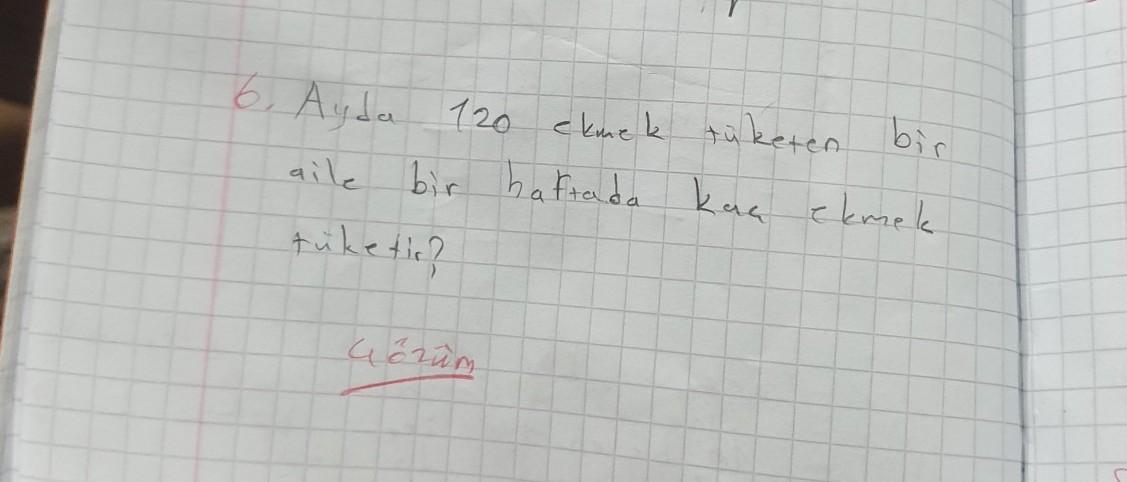 6. Ayda 120 ekmek tüketen bir
aile bir haftada kaç ekmek
tüketir?
Çözüm